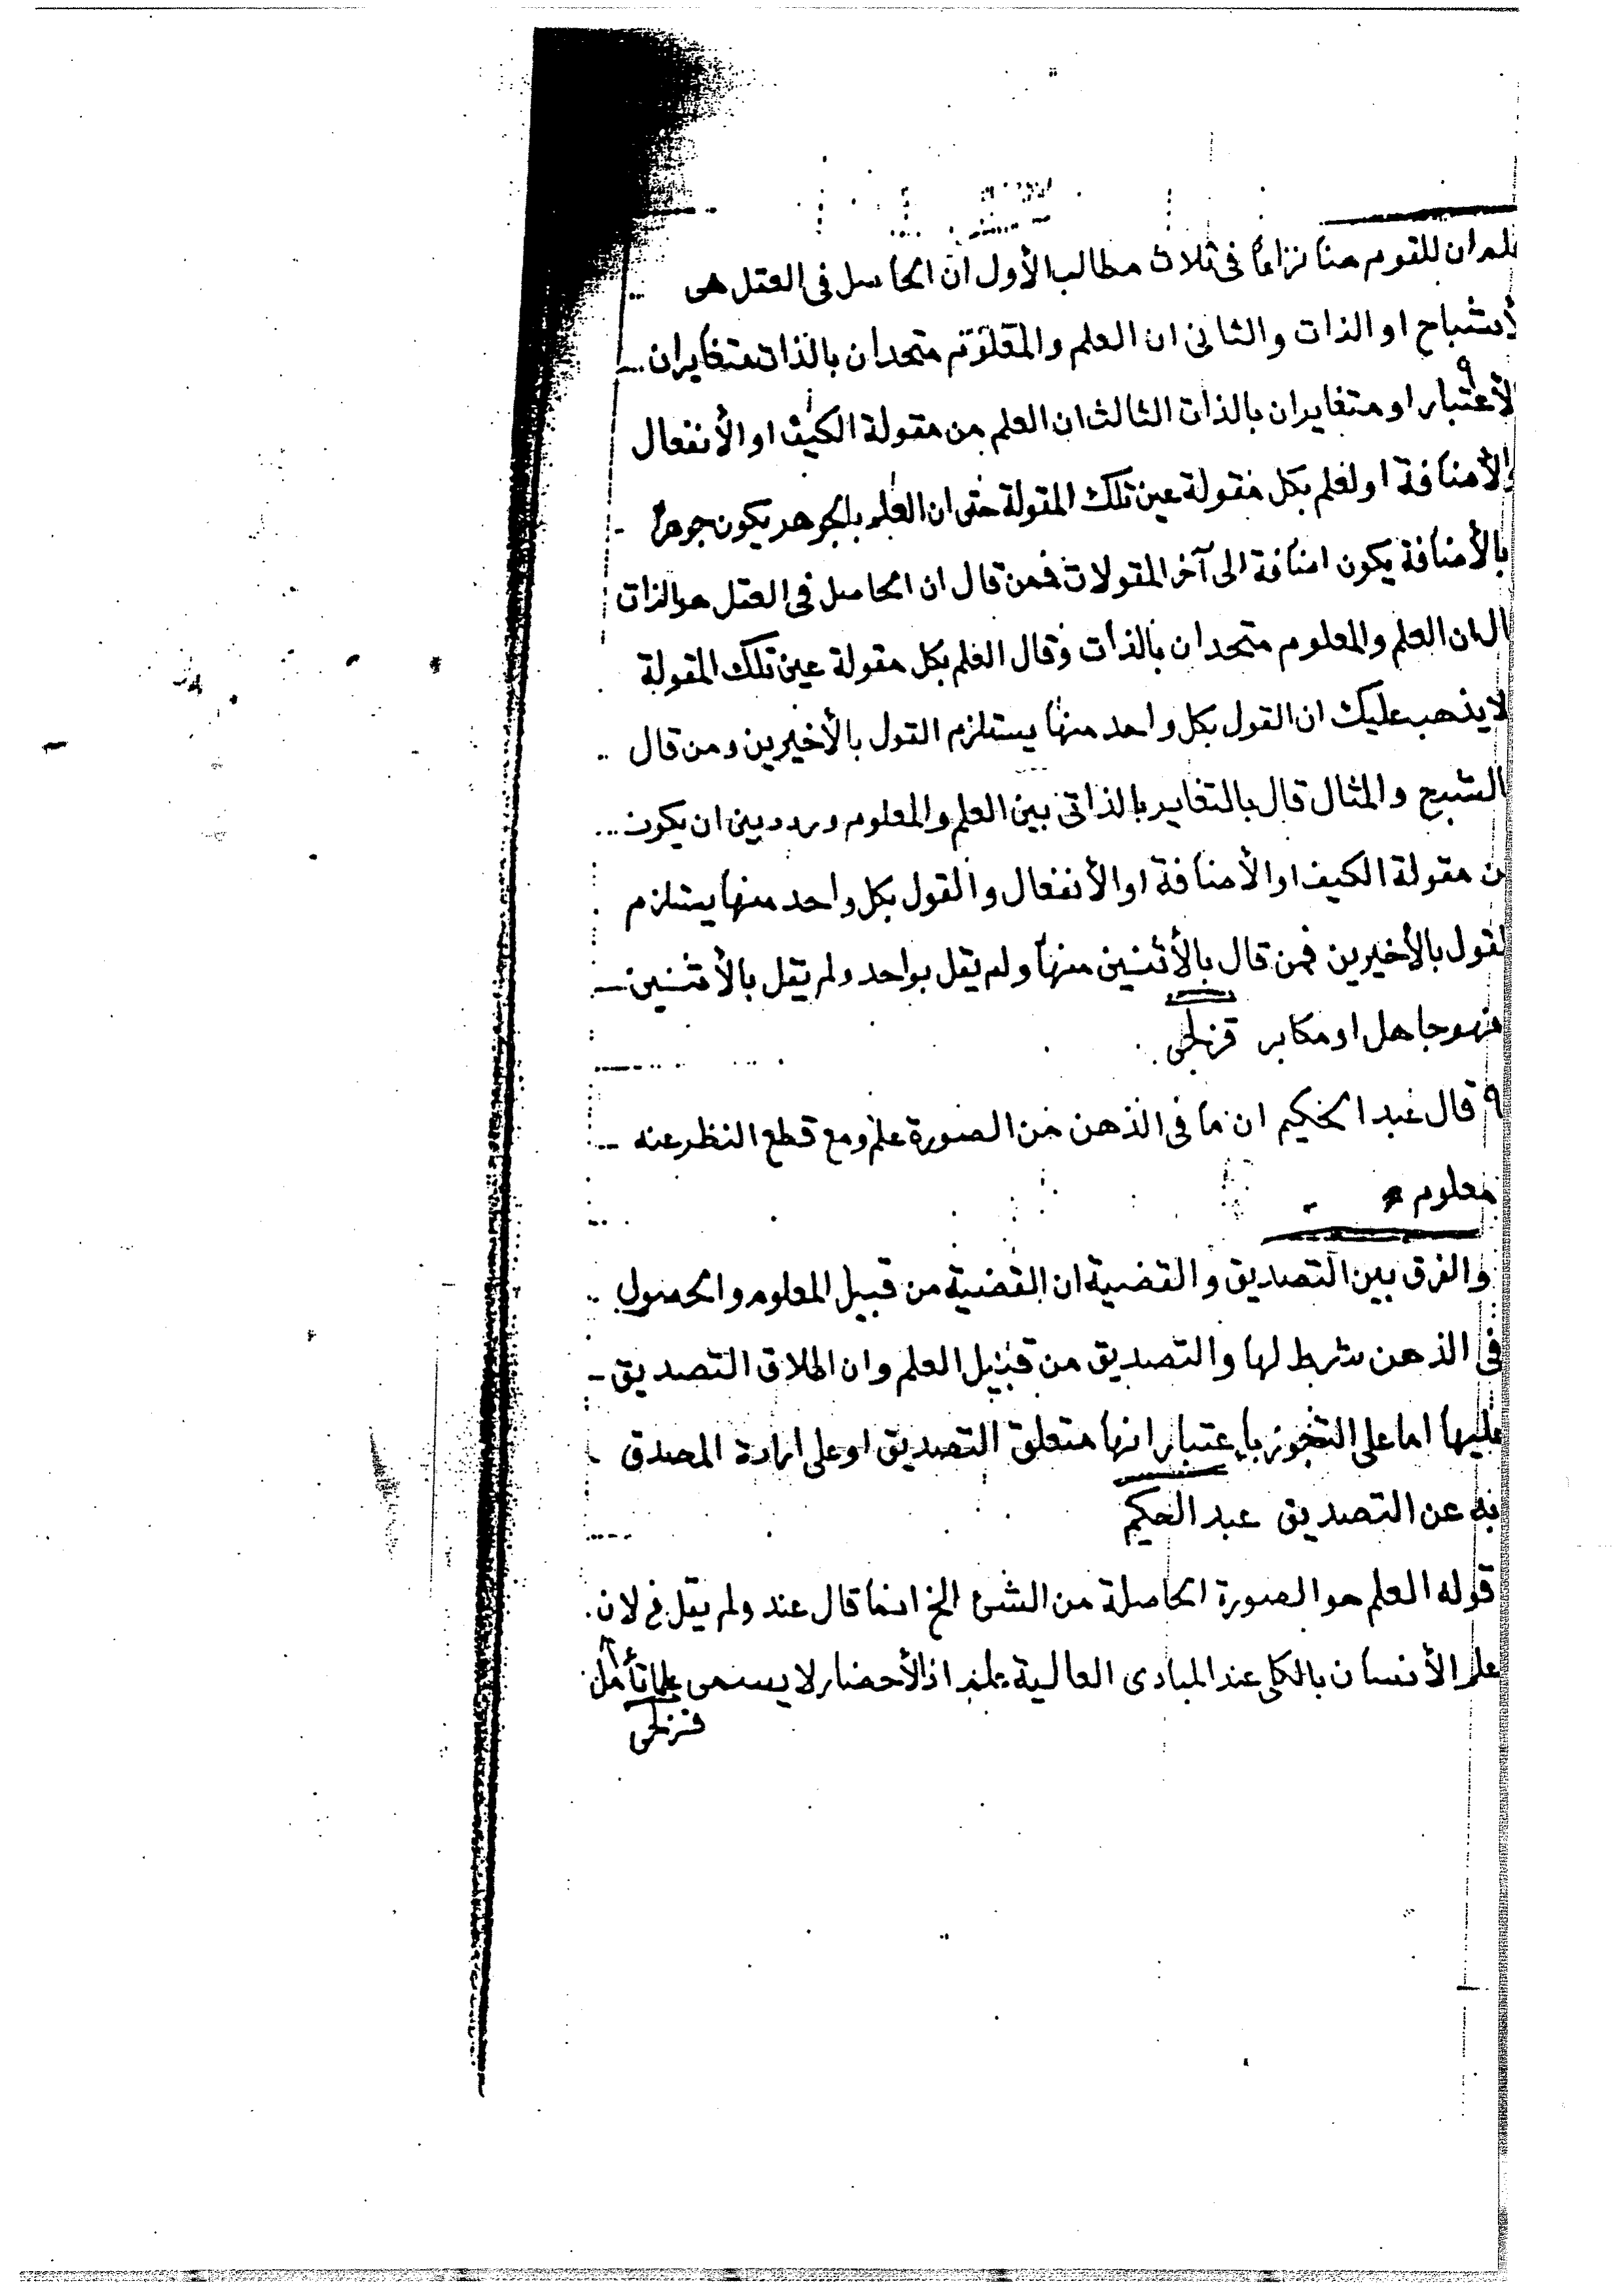 علم ان للقوم هنا نزاعًا فى ثلاث مطالب الأول ان الحاصل فى العقل هى
لأشباح او الذات والثانى ان العلم والمعلوم متحدان بالذات متغايران
الأعتبار او متغايران بالذات الثالث ان العلم من مقولة الكيف او الأنفعال
الأضافة او لعلم بكل مقولة عين تلك المقولة حتى ان العلم بالجوهر يكون جوهرًا
بالأضافة يكون اضافة الى آخر المقولات فمن قال ان الحاصل فى العقل هو الذات
ال ان العلم والمعلوم متحدان بالذات وقال العلم بكل مقولة عين تلك المقولة
لا يذهب عليك ان القول بكل واحد منها يستلزم القول بالأخيرين ومن قال
الشبح والمثال قال بالتغاير بالذاتى بين العلم والمعلوم وردد بين ان يكون
من مقولة الكيف او الأضافة او الأنفعال والقول بكل واحد منها يستلزم
لقول بالأخيرين فمن قال بالأثنين منها ولم يقل بواحد ولم يقل بالأثنين
فهو جاهل او مكابر قزلجى
٩ قال عبد الحكيم ان ما فى الذهن من الصورة علم ومع قطع النظر عنه
معلوم
والفرق بين التصديق والقضية ان القضية من قبيل المعلوم والحصول
فى الذهن شرط لها والتصديق من قبيل العلم وان اطلاق التصديق
عليها اما على التجوز بإعتبار انها متعلق التصديق او على ارادة المصدق
به عن التصديق عبد الحكيم
قوله العلم هو الصورة الحاصلة من الشئ الخ انما قال عند ولم يقل فى لان
علم الأنسان بالكلى عند المبادى العالية اذ الأحضار لا يسمى علما تأمل
قزلجى